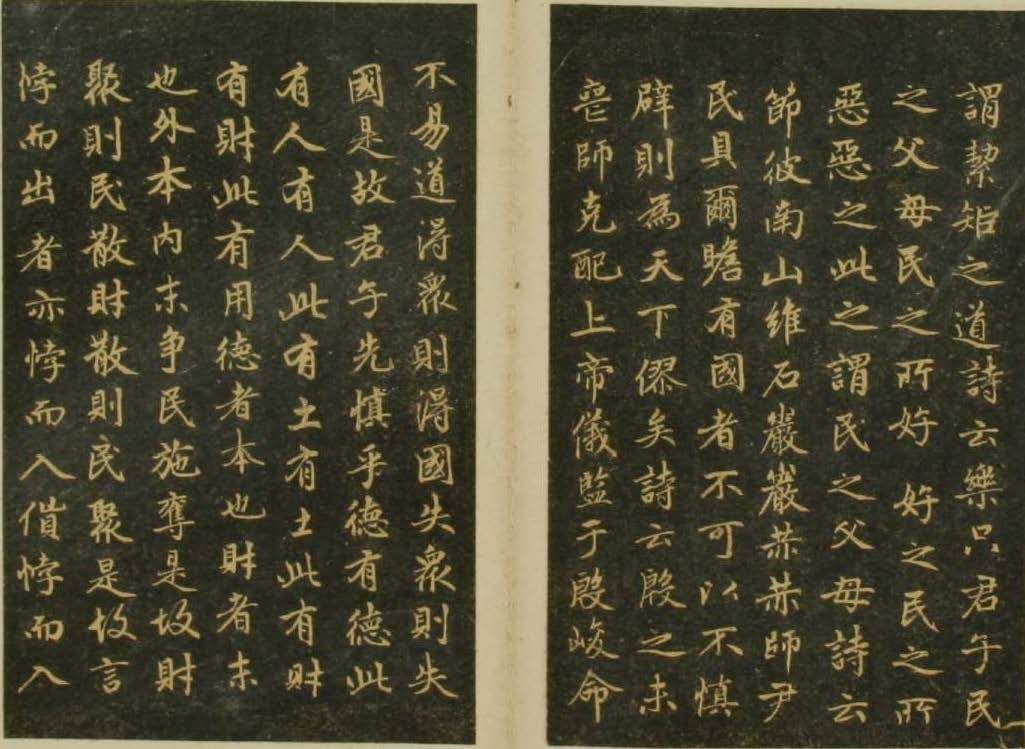 謂絜矩之道詩云樂只君子民
之父母民之所好好之民之所
惡惡之此之謂民之父母詩云
節彼南山維石巖巖赫赫師尹
民具爾瞻有國者不可以不慎
辟則為天下僇矣詩云殷之未
喪師克配上帝儀監于殷峻命
不易道得衆則得國失衆則失
國是故君子先慎乎德有德此
有人有人此有土有土此有財
有財此有用德者本也財者末
也外本內末争民施奪是故財
聚則民散財散則民聚是故言
悖而出者亦悖而入偩悖而入